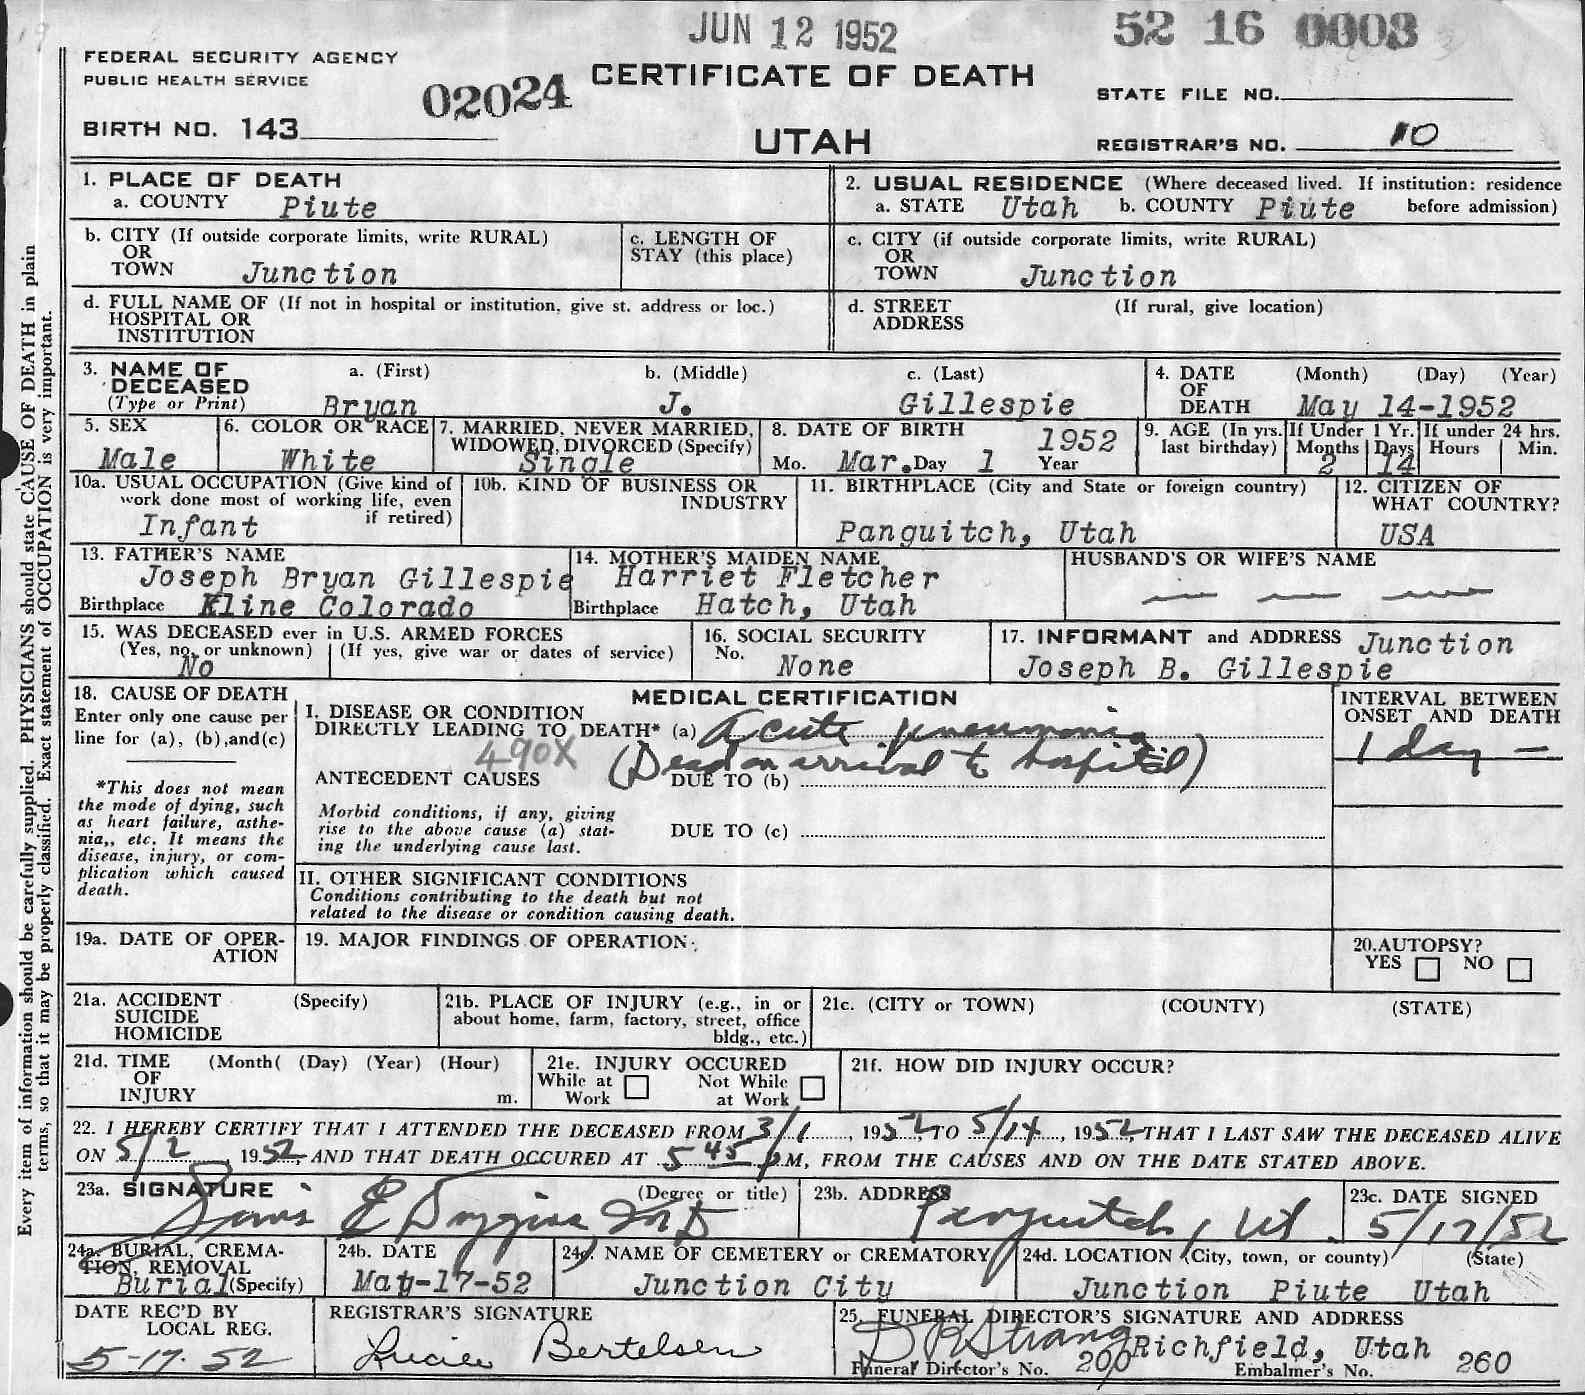 JUN 12 1952
52 16 0003
FEDERAL SECURITY AGENCY
PUBLIC HEALTH SERVICE
02024
CERTIFICATE OF DEATH
STATE FILE NO.
BIRTH NO. 143
UTAH
REGISTRAR'S NO. 10
1. PLACE OF DEATH
a. COUNTY Piute
2. USUAL RESIDENCE (Where deceased lived. If institution: residence before admission)
a. STATE Utah b. COUNTY Piute
b. CITY (If outside corporate limits, write RURAL)
OR
TOWN Junction
c. LENGTH OF
STAY (this place)
c. CITY (if outside corporate limits, write RURAL)
OR
TOWN Junction
d. FULL NAME OF (If not in hospital or institution, give st. address or loc.)
HOSPITAL OR
INSTITUTION
d. STREET (If rural, give location)
ADDRESS
3. NAME OF a. (First) b. (Middle) c. (Last)
DECEASED
(Type or Print) Bryan J. Gillespie
4. DATE (Month) (Day) (Year)
OF
DEATH May 14-1952
5. SEX
Male
6. COLOR OR RACE
White
7. MARRIED, NEVER MARRIED,
WIDOWED, DIVORCED (Specify)
Single
8. DATE OF BIRTH 1952
Mo. Mar. Day 1 Year
9. AGE (In yrs. last birthday)
If Under 1 Yr.
Months Days
2 14
If under 24 hrs.
Hours Min.
10a. USUAL OCCUPATION (Give kind of
work done most of working life, even
if retired)
Infant
10b. KIND OF BUSINESS OR
INDUSTRY
11. BIRTHPLACE (City and State or foreign country)
Panguitch, Utah
12. CITIZEN OF
WHAT COUNTRY?
USA
13. FATHER'S NAME
Joseph Bryan Gillespie
Birthplace Kline Colorado
14. MOTHER'S MAIDEN NAME
Harriet Fletcher
Birthplace Hatch, Utah
HUSBAND'S OR WIFE'S NAME
15. WAS DECEASED ever in U.S. ARMED FORCES
(Yes, no, or unknown) (If yes, give war or dates of service)
No
16. SOCIAL SECURITY
No. None
17. INFORMANT and ADDRESS Junction
Joseph B. Gillespie
18. CAUSE OF DEATH
Enter only one cause per
line for (a), (b),and(c)
*This does not mean
the mode of dying, such
as heart failure, asthe-
nia,, etc. It means the
disease, injury, or com-
plication which caused
death.
MEDICAL CERTIFICATION
I. DISEASE OR CONDITION
DIRECTLY LEADING TO DEATH* (a) Acute pneumonia
490X (Dead on arrival to hospital)
ANTECEDENT CAUSES DUE TO (b)
Morbid conditions, if any, giving
rise to the above cause (a) stat-
ing the underlying cause last.
DUE TO (c)
INTERVAL BETWEEN
ONSET AND DEATH
1 day –
II. OTHER SIGNIFICANT CONDITIONS
Conditions contributing to the death but not
related to the disease or condition causing death.
19a. DATE OF OPER-
ATION
19. MAJOR FINDINGS OF OPERATION
20.AUTOPSY?
YES NO
21a. ACCIDENT (Specify)
SUICIDE
HOMICIDE
21b. PLACE OF INJURY (e.g., in or
about home, farm, factory, street, office
bldg., etc.)
21c. (CITY or TOWN) (COUNTY) (STATE)
21d. TIME (Month( (Day) (Year) (Hour)
OF
INJURY m.
21e. INJURY OCCURED
While at Work Not While at Work
21f. HOW DID INJURY OCCUR?
22. I HEREBY CERTIFY THAT I ATTENDED THE DECEASED FROM 3/1, 1952, TO 5/14, 1952, THAT I LAST SAW THE DECEASED ALIVE
ON 5/2 1952, AND THAT DEATH OCCURED AT 5 45 P.M, FROM THE CAUSES AND ON THE DATE STATED ABOVE.
23a. SIGNATURE (Degree or title)
23b. ADDRESS
Panguitch, Ut.
23c. DATE SIGNED
5/17/52
24a. BURIAL, CREMA-
TION, REMOVAL
Burial (Specify)
24b. DATE
May-17-52
24c. NAME OF CEMETERY or CREMATORY
Junction City
24d. LOCATION (City, town, or county) (State)
Junction Piute Utah
DATE REC'D BY
LOCAL REG.
5-17-52
REGISTRAR'S SIGNATURE
Lucile Bertelsen
25. FUNERAL DIRECTOR'S SIGNATURE AND ADDRESS
Strang Richfield, Utah
Funeral Director's No. 200 Embalmer's No. 260
Every item of information should be carefully supplied. PHYSICIANS should state CAUSE OF DEATH in plain
terms, so that it may be properly classified. Exact statement of OCCUPATION is very important.